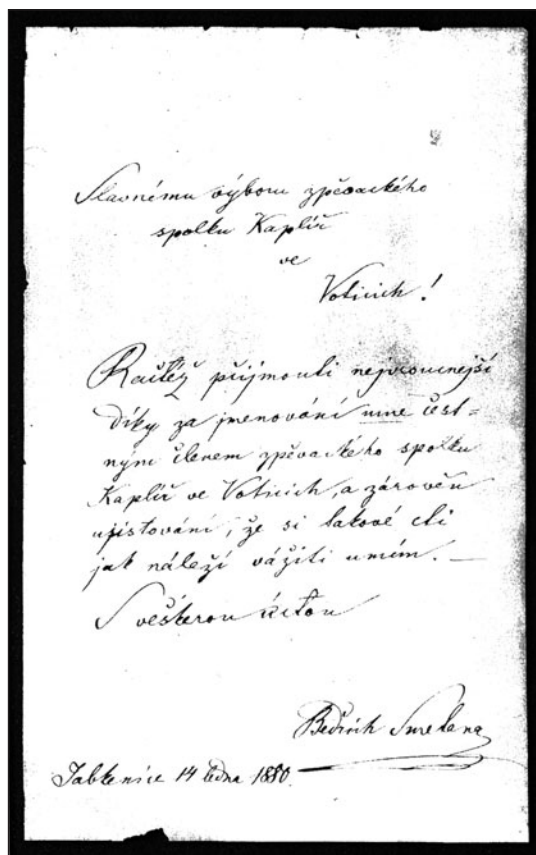 Slavnému výboru zpěvackého
spolku Kaplíř
ve
Voticích!
Račtěž přijmouti nejvroucnejší
díky za jmenování mne čest=
ným členem zpěvackého spolku
Kaplíř ve Voticích, a zárověn
ujistování, že si takové cti
jak náleží vážiti umím. —
S veškerou úctou
Bedřich Smetana
Jabkenice 14 ledna 1880.